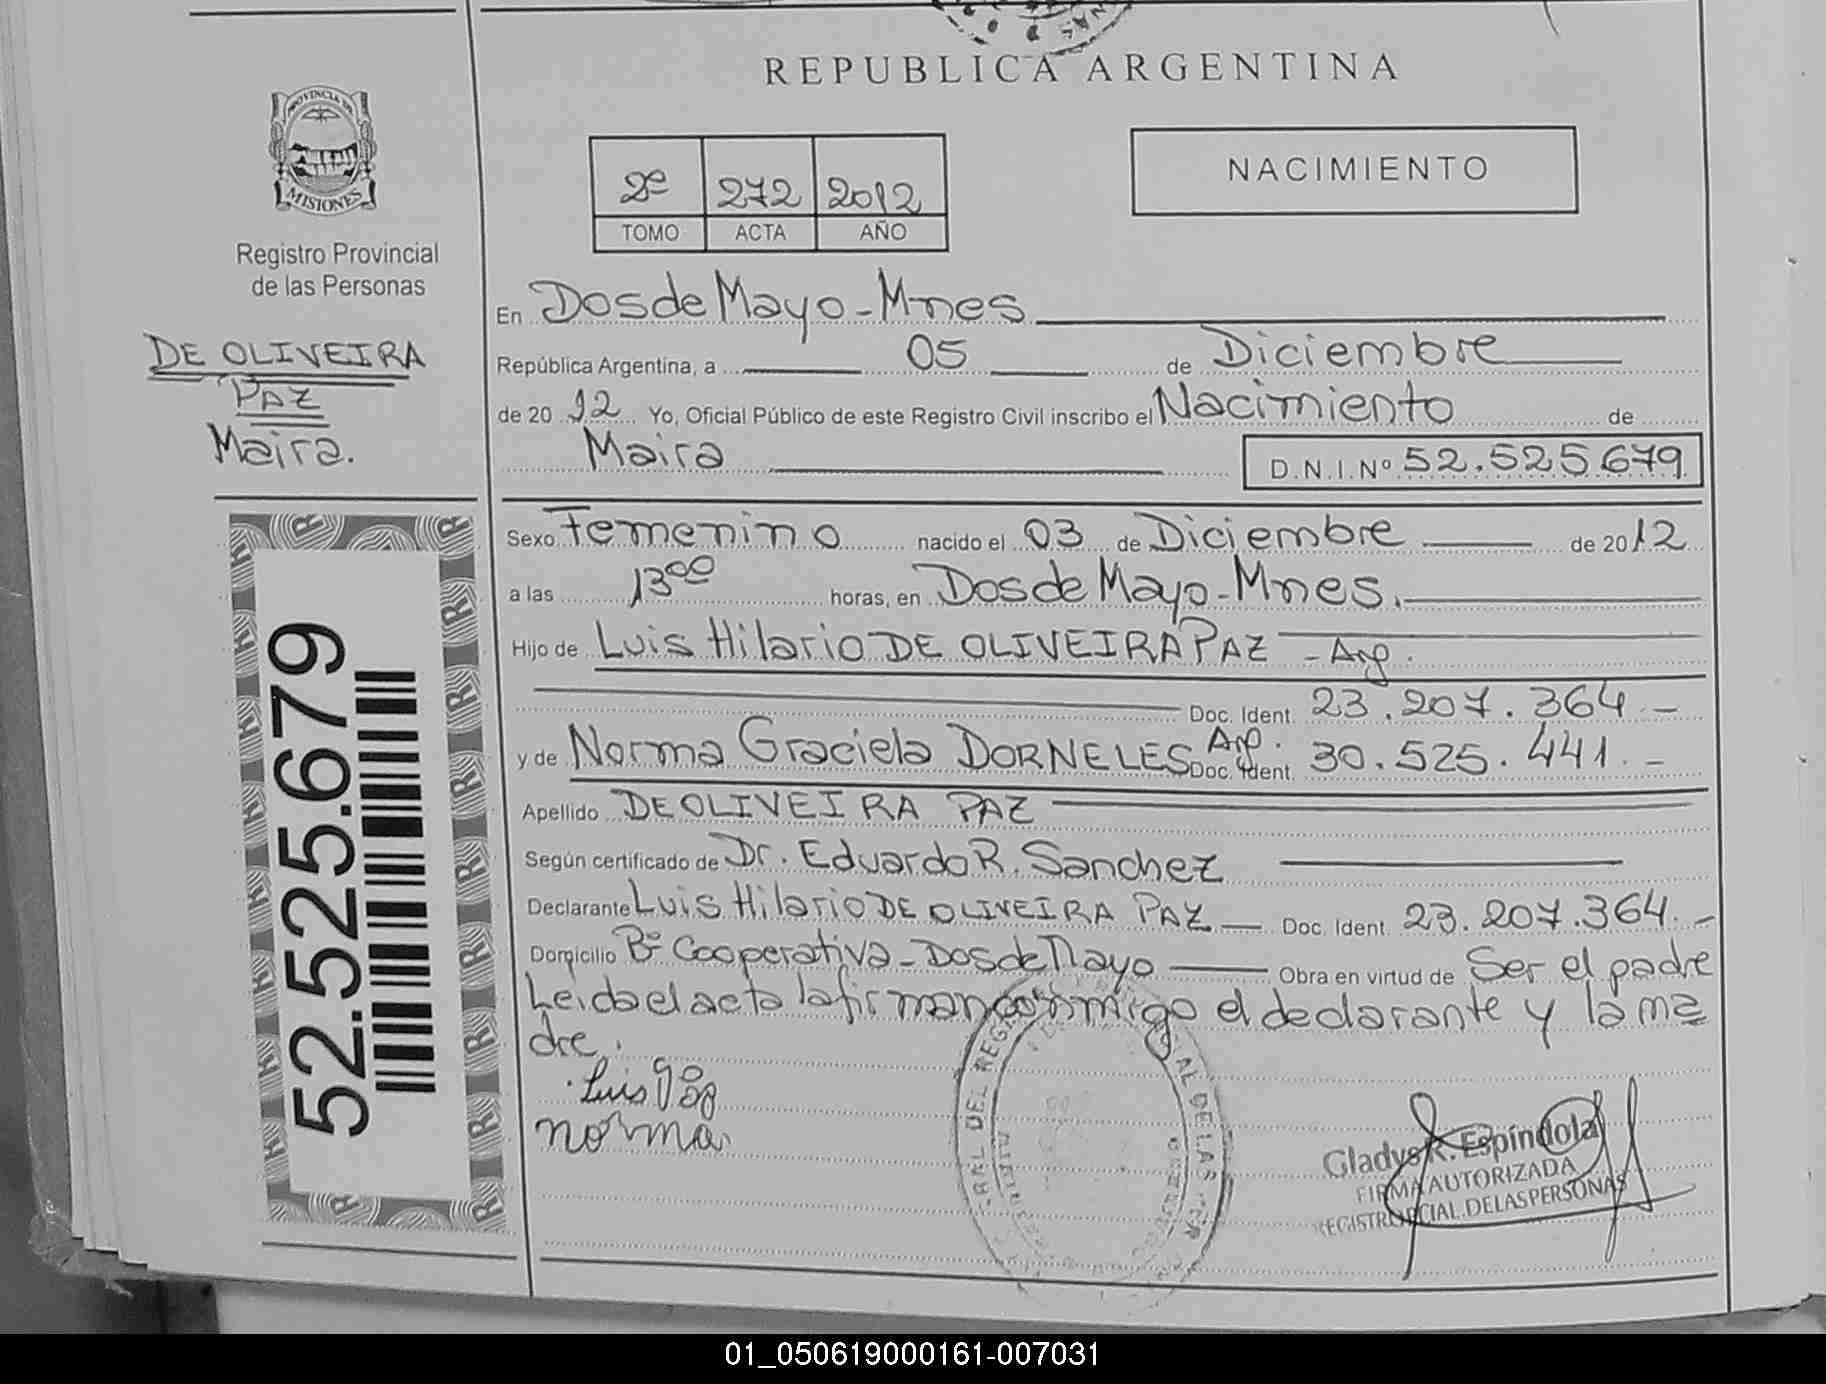 REPUBLICA ARGENTINA
PROVINCIA DE
MISIONES
Registro Provincial
de las Personas
DE OLIVEIRA
PAZ
Maira.
52.525.679
2º 272 2012
TOMO ACTA AÑO
NACIMIENTO
En Dos de Mayo - Mnes
República Argentina, a 05 de Diciembre
de 20 12 Yo, Oficial Público de este Registro Civil inscribo el Nacimiento de
Maira D.N.I.Nº 52.525.679
Sexo Femenino nacido el 03 de Diciembre de 2012
a las 13 00 horas, en Dos de Mayo - Mnes.
Hijo de Luis Hilario DE OLIVEIRA PAZ - Arg.
Doc. Ident. 23.207.364.-
y de Norma Graciela DORNELES Arg. Doc. Ident. 30.525.441.-
Apellido DE OLIVEIRA PAZ
Según certificado de Dr. Eduardo R. Sanchez
Declarante Luis Hilario DE OLIVEIRA PAZ Doc. Ident. 23.207.364.-
Domicilio Bº Cooperativa - Dos de Mayo Obra en virtud de Ser el padre
Leida el acta la firman conmigo el declarante y la ma
dre.
Luis
norma
Gladys R. Espíndola
FIRMA AUTORIZADA
REGISTRO PCIAL. DE LAS PERSONAS
01_050619000161-007031